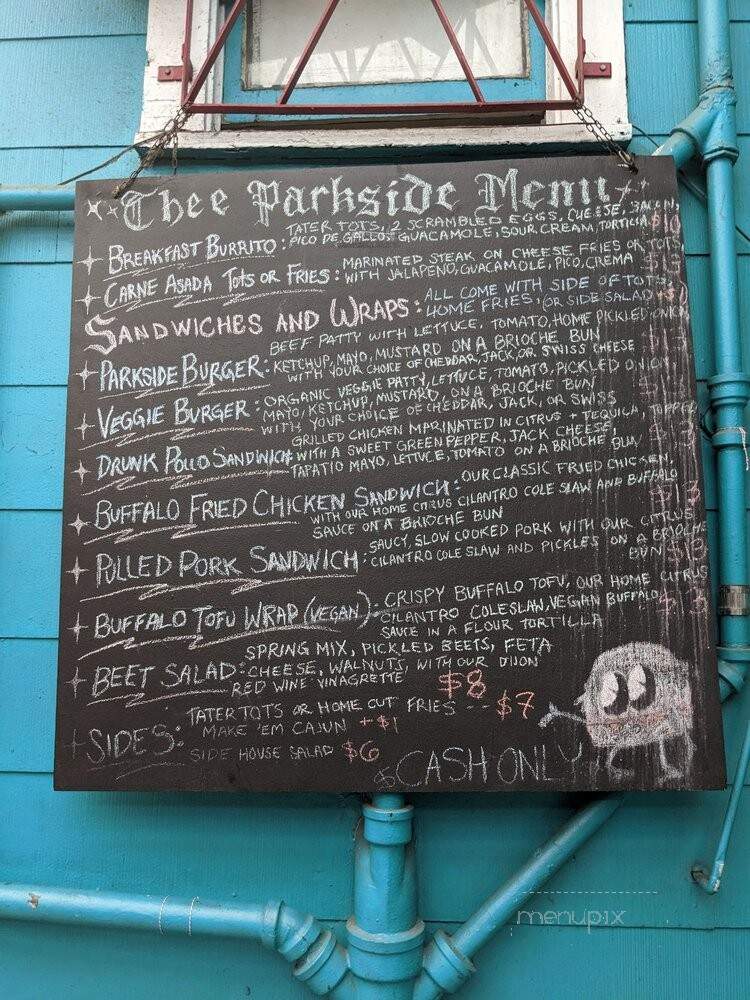 Thee Parkside Menu
BREAKFAST BURRITO: TATER TOTS, 2 SCRAMBLED EGGS, CHEESE, BACON,
PICO DE GALLO, GUACAMOLE, SOUR CREAM TORTILLA
CARNE ASADA TOTS OR FRIES: MARINATED STEAK ON CHEESE FRIES OR TOTS
WITH JALAPENO, GUACAMOLE, PICO, CREMA
SANDWICHES AND WRAPS: ALL COME WITH SIDE OF TOTS,
HOME FRIES, OR SIDE SALAD
PARKSIDE BURGER: BEEF PATTY WITH LETTUCE, TOMATO, HOME PICKLED ONION
KETCHUP, MAYO, MUSTARD ON A BRIOCHE BUN
WITH YOUR CHOICE OF CHEDDAR, JACK, OR SWISS CHEESE
VEGGIE BURGER: ORGANIC VEGGIE PATTY, LETTUCE, TOMATO, PICKLED ONION
MAYO, KETCHUP, MUSTARD, ON A BRIOCHE BUN
WITH YOUR CHOICE OF CHEDDAR, JACK, OR SWISS
DRUNK POLLO SANDWICH: GRILLED CHICKEN MARINATED IN CITRUS + TEQUILA, TOPPED
WITH A SWEET GREEN PEPPER, JACK CHEESE,
TAPATIO MAYO, LETTUCE, TOMATO ON A BRIOCHE BUN
BUFFALO FRIED CHICKEN SANDWICH: OUR CLASSIC FRIED CHICKEN,
WITH OUR HOME CITRUS CILANTRO COLE SLAW AND BUFFALO
SAUCE ON A BRIOCHE BUN
PULLED PORK SANDWICH: SAUCY, SLOW COOKED PORK WITH OUR CITRUS
CILANTRO COLE SLAW AND PICKLES ON A BRIOCHE
BUN
BUFFALO TOFU WRAP (VEGAN): CRISPY BUFFALO TOFU, OUR HOME CITRUS
CILANTRO COLESLAW, VEGAN BUFFALO
SAUCE IN A FLOUR TORTILLA
BEET SALAD: SPRING MIX, PICKLED BEETS, FETA
CHEESE, WALNUTS, WITH OUR DIJON
RED WINE VINAGRETTE $8
SIDES: TATER TOTS OR HOME CUT FRIES -- $7
MAKE 'EM CAJUN +$1
SIDE HOUSE SALAD $6
$CASH ONLY
menupix